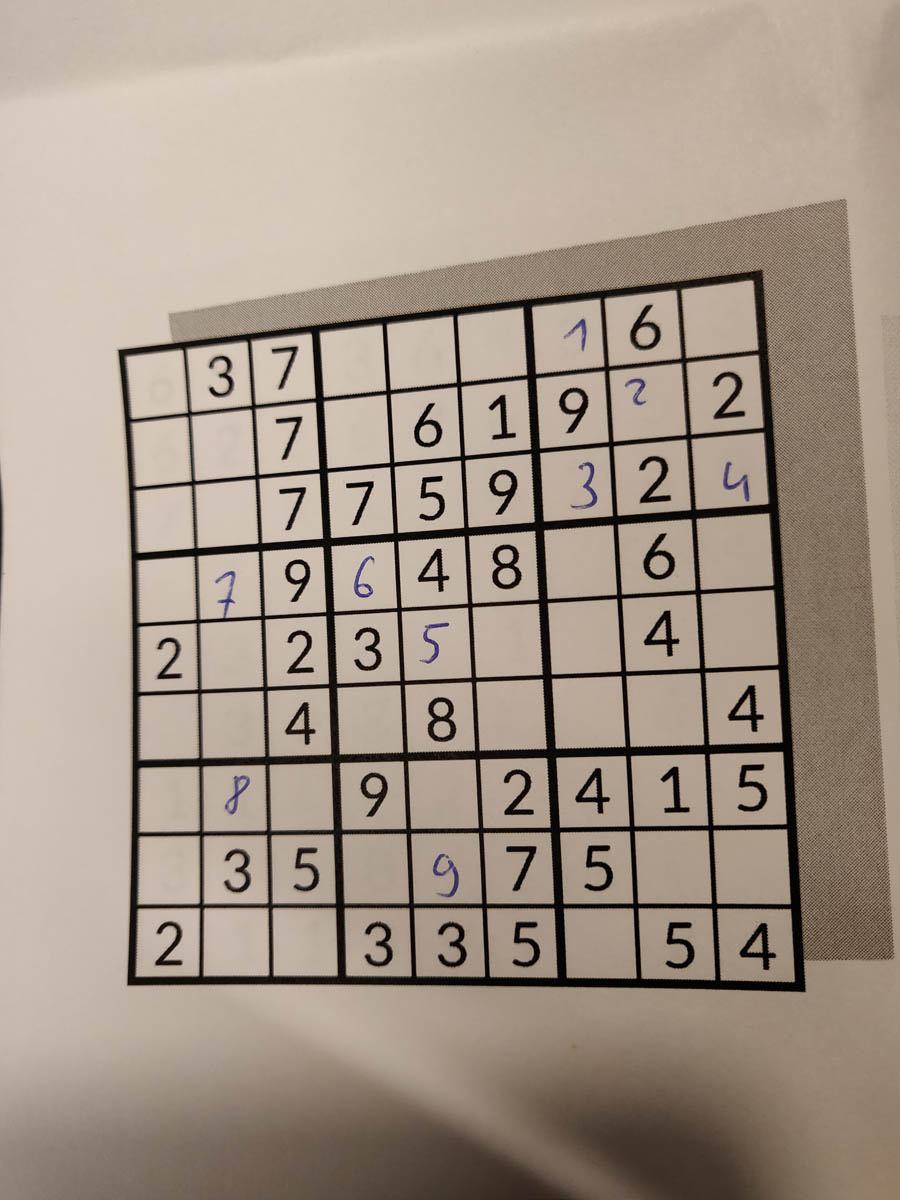 3 7 1 6
7 6 1 9 2 2
7 7 5 9 3 2 4
7 9 6 4 8 6
2 2 3 5 4
4 8 4
8 9 2 4 1 5
3 5 9 7 5
2 3 3 5 5 4